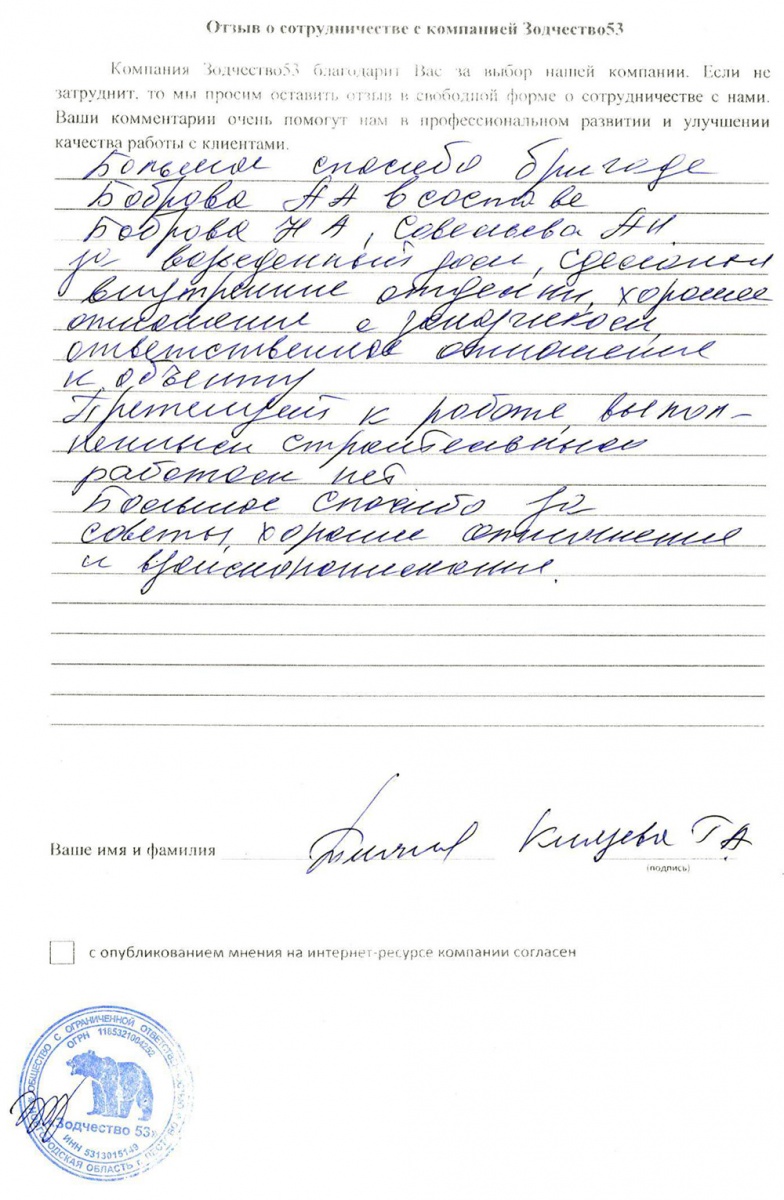 Отзыв о сотрудничестве с компанией Зодчество53
Компания Зодчество53 благодарит Вас за выбор нашей компании. Если не
затруднит, то мы просим оставить отзыв в свободной форме о сотрудничестве с нами.
Ваши комментарии очень помогут нам в профессиональном развитии и улучшении
качества работы с клиентами.
Большое спасибо бригаде
Боброва АА в составе
Боброва НА, Савельева АН
за возведенный дом, сделанные
внутренние отделки, хорошее
отношение с заказчиком,
ответственное отношение
к объекту
Претензий к работе, выпол-
ненным строительным
работам нет
Большое спасибо за
советы, хорошие отношения
и взаимопонимание.
Ваше имя и фамилия Князева Г.А
(подпись)
с опубликованием мнения на интернет-ресурсе компании согласен
ОБЩЕСТВО С ОГРАНИЧЕННОЙ ОТВЕТСТВЕННОСТЬЮ
ОГРН 1185321004252
Зодчество 53
ИНН 5313015149
НОВГОРОДСКАЯ ОБЛАСТЬ г. ПЕСТОВО